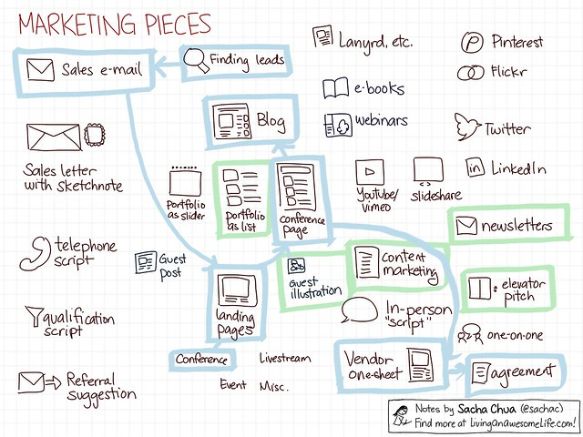 MARKETING PIECES
Sales e-mail
Finding leads
Lanyrd, etc.
Pinterest
Flickr
e-books
Blog
webinars
Twitter
Sales letter
with sketchnote
portfolio
as slider
portfolio
as list
conference
page
YouTube/
vimeo
slideshare
LinkedIn
newsletters
telephone
script
Guest
post
Guest
illustration
content
marketing
elevator
pitch
landing
pages
In-person
"script"
qualification
script
one-on-one
Conference
Livestream
Event
Misc.
Vendor
one-sheet
agreement
Referral
suggestion
Notes by Sacha Chua (@sachac)
Find more at livinganawesomelife.com!